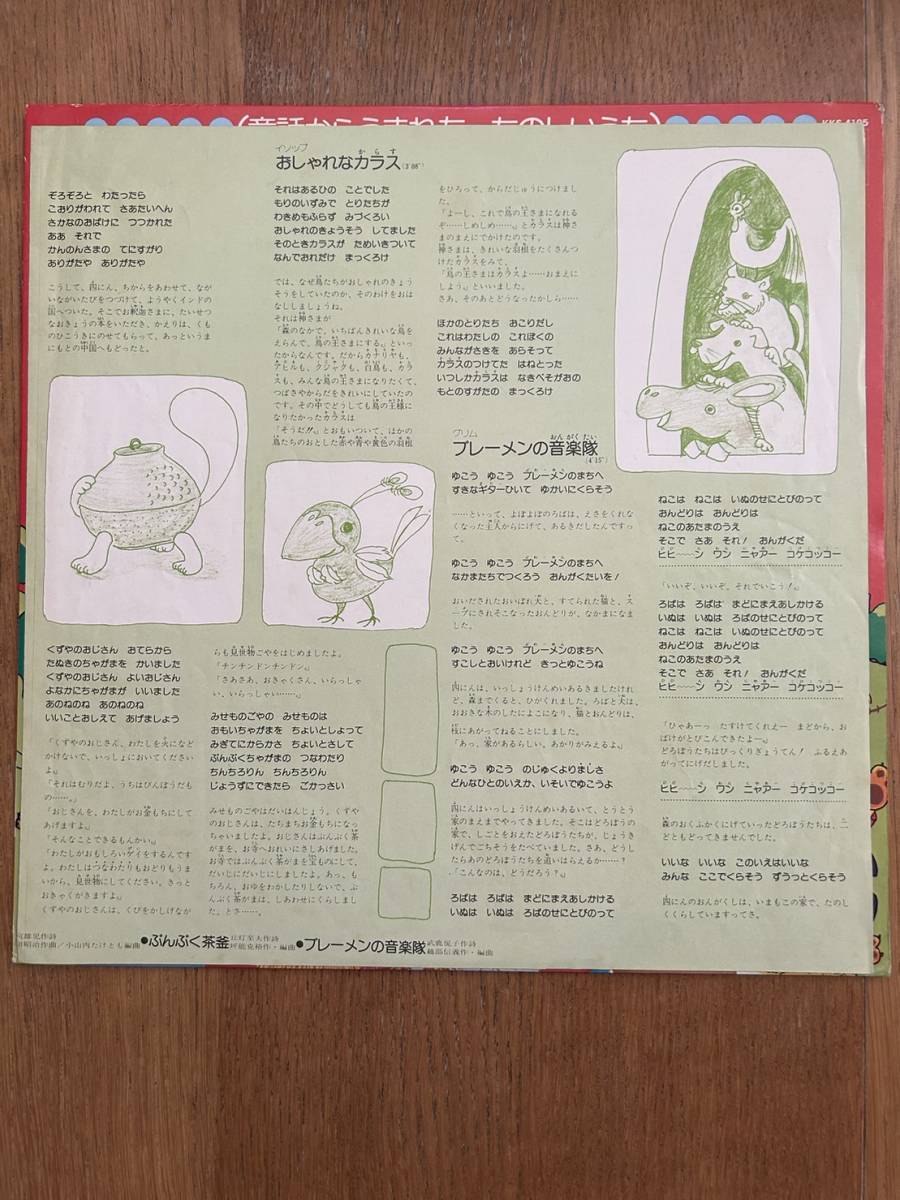 (童話からうまれた たのしいうた)
KKS-4195
ぞろぞろと わたったら
こおりがわれて さあたいへん
さかなのおばけに つつかれた
ああ それで
かんのんさまの てにすがり
ありがたや ありがたや
こうして、四にん、ちからをあわせて、なが
いながいたびをつづけて、ようやくインドの
国へついた。そこでお釈迦さまに、たいせつ
なおきょうの本をいただき、かえりは、くも
のひこうきにのせてもらって、あっというま
にもとの中国へもどったと。
くずやのおじさん おてらから
たぬきのちゃがまを かいました
くずやのおじさん よいおじさん
よなかにちゃがまが いいました
あのねのね あのねのね
いいことおしえて あげましょう
「くずやのおじさん、わたしを火になど
かけないで、いっしょにおいてください
よ。」
「それはむりだよ、うちはびんぼうだも
の……。」
「おじさんを、わたしがお金もちにして
あげますよ。」
「そんなことできるもんかい。」
「わたしがおもしろいゲイをするんです
よ。わたしはつなわたりもおどりもうま
いから、見世物にしてください。きっと
おきゃくがきますよ。」
くずやのおじさんは、くびをかしげなが
らも見世物ごやをはじめましたよ。
「チンチンドンチンドン。」
「さあさあ、おきゃくさん、いらっしゃ
い、いらっしゃい……。」
みせものごやの みせものは
おもいちゃがまを ちょいとしょって
みぎてにからかさ ちょいとさして
ぶんぶくちゃがまの つなわたり
ちんちろりん ちんちろりん
じょうずにできたら ごかっさい
みせものごやはだいはんじょう。くずや
のおじさんは、たちまちお金もちになっ
ちゃいましたよ。おじさんはぶんぶく茶
がまを、お寺へおれいにさしあげました。
お寺ではぶんぶく茶がまを宝ものにして、
だいじにだいじにしましたよ。あっ、も
ちろん、おゆをわかしたりしないで、ぶ
んぶく茶がまは、しあわせにくらしまし
た、とさ……。
イソップ
おしゃれなカラス(3'08")
からす
それはあるひの ことでした
もりのいずみで とりたちが
わきめもふらず みづくろい
おしゃれのきょうそう してました
そのときカラスが ためいきついて
なんでおれだけ まっくろけ
では、なぜ鳥たちがおしゃれのきょう
そうをしていたのか、そのわけをおは
なししましょうね。
それは神さまが
「森のなかで、いちばんきれいな鳥を
えらんで、鳥の王さまにする。」といっ
たからなんです。だからカナリヤも、
アヒルも、クジャクも、白鳥も、カラ
スも、みんな鳥の王さまになりたくて、
つばさやからだをきれいにしていたの
です。その中でどうしても鳥の王様に
なりたかったカラスは
「そうだ!!」とおもいついて、ほかの
鳥たちのおとした赤や青や黄色の羽根
をひろって、からだじゅうにつけまし
た。
「よーし、これで鳥の王さまになれる
ぞ……しめしめ……。」とカラスは神さ
まのまえにでかけたのです。
神さまは、きれいな羽根をたくさんつ
けたカラスをみて、
「鳥の王さまはカラスよ……おまえに
しよう。」といいました。
さあ、そのあとどうなったかしら……
ほかのとりたち おこりだし
これはわたしの これぼくの
みんながさきを あらそって
カラスのつけてた はねとった
いつしかカラスは なきべそがおの
もとのすがたの まっくろけ
グリム
ブレーメンの音楽隊
おんがくたい
(4'15")
ゆこう ゆこう ブレーメンのまちへ
すきなギターひいて ゆかいにくらそう
……といって、よぼよぼのろばは、えさをくれな
くなった主人からにげて、あるきだしたんですっ
て。
ゆこう ゆこう ブレーメンのまちへ
なかまたちでつくろう おんがくたいを!
おいだされたおいぼれ犬と、すてられた猫と、ス
ープにされそこなったおんどりが、なかまになま
した。
ゆこう ゆこう ブレーメンのまちへ
すこしとおいけれど きっとゆこうね
四にんは、いっしょうけんめいあるきましたけれ
ど、森までくると、ひがくれました。ろばと犬は、
おおきな木のしたによこになり、猫とおんどりは、
枝にあがってねることにしました。
「あっ、家があるらしい。あかりがみえるよ。」
ゆこう ゆこう のじゅくよりましさ
どんなひとのいえか、いそいでゆこうよ
四にんはいっしょうけんめいあるいて、とうとう
家のまえまでやってきました。そこはどろぼうの
家で、しごとをおえたどろぼうたちが、じょうき
げんでごちそうをたべていました。さあ、どうし
たらあのどろぼうたちを追いはらえるか……?
「こんなのは、どうだろう?」
ろばは ろばは まどにまえあしかける
いぬは いぬは ろばのせにとびのって
ねこは ねこは いぬのせにとびのって
おんどりは おんどりは
ねこのあたまのうえ
そこで さあ それ! おんがくだ
ヒヒ〜〜ン ウン ニャアー コケコッコー
「いいぞ、いいぞ。それでいこう!」
ろばは ろばは まどにまえあしかける
いぬは いぬは ろばのせにとびのって
ねこは ねこは いぬのせにとびのって
おんどりは おんどりは
ねこのあたまのうえ
そこで さあ それ! おんがくだ
ヒヒ〜〜ン ウン ニャアー コケコッコー
「ひゃあーっ たすけてくれえー まどから、お
ばけがとびこんできたよー。」
どろぼうたちはびっくりぎょうてん! ふるえあ
がってにげだしました。
ヒヒ〜〜ン ウン ニャアー コケコッコー
森のおくふかくにげていったどろぼうたちは、二
どともどってきませんでした。
いいな いいな このいえはいいな
みんな ここでくらそう ずうっとくらそう
四にんのおんがくしは、いまもこの家で、たのし
くくらしていますってさ。
●ぶんぶく茶釜
●ブレーメンの音楽隊